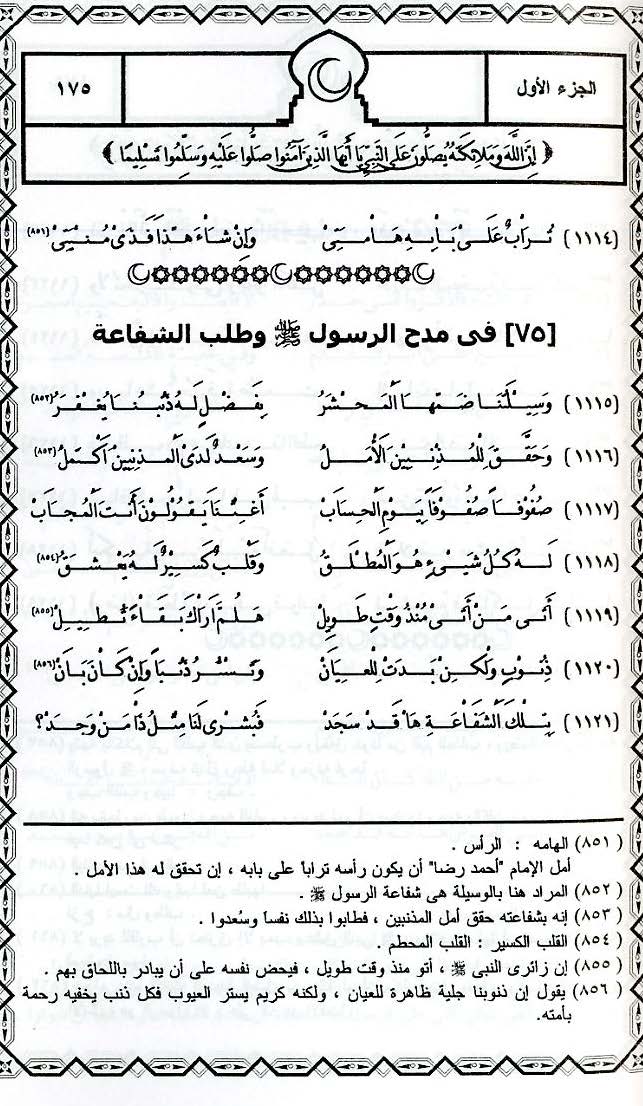 الجزء الأول
١٧٥
﴿ إِنَّ اللَّهَ وَمَلَائِكَتَهُ يُصَلُّونَ عَلَى النَّبِيِّ يَا أَيُّهَا الَّذِينَ آمَنُوا صَلُّوا عَلَيْهِ وَسَلِّمُوا تَسْلِيمًا ﴾
(١١١٤) تُرَابٌ عَلَىٰ بَابِهِ هَامَتِىْ وَإِنْ شَاءَ هٰذَا فَذَىْ مُنْيَتِىْ (٨٥١)
[٧٥] فى مدح الرسول ﷺ وطلب الشفاعة
(١١١٥) وَسِيلَتُنَا ضَمَّهَا الْمَحْشَرُ بِفَضْلٍ لَهُ ذَنْبُنَا يُغْفَرُ (٨٥٢)
(١١١٦) وَحَقَّقَ لِلْمُذْنِبِيْنَ الأَمَلْ وَسَعْدٌ لَدَى الْمُذْنِبِيْنَ اكْتَمَلْ (٨٥٣)
(١١١٧) صُفُوْفاً صُفُوْفاً بِيَوْمِ الْحِسَابْ أَغِثْنَا يَقُوْلُوْنَ أَنْتَ الْمُجَابْ
(١١١٨) لَهُ كُلُّ شَيْىءٍ هُوَ الْمُطْلَقُ وَقَلْبٌ كَسِيْرٌ لَهُ يَعْشَقُ (٨٥٤)
(١١١٩) أَتَى مَنْ أَتَىْ مُنْذُ وَقْتٍ طَوِيْلْ هَلُمَّ أَرَاكَ بَقَاءً تُطِيْلْ (٨٥٥)
(١١٢٠) ذُنُوْبٍ وَلٰكِنْ بَدَتْ لِلْعِيَانْ وَتَسْتُرُ ذَنْباً وَإِنْ كَانَ بَانْ (٨٥٦)
(١١٢١) بِتِلْكَ الشَّفَاعَةِ هَا قَدْ سَجَدْ فَبُشْرَى لَنَا مِثْلُ ذَا مَنْ وَجَدْ؟
(٨٥١) الهامه : الرأس .
أمل الإمام "أحمد رضا" أن يكون رأسه تراباً على بابه ، إن تحقق له هذا الأمل .
(٨٥٢) المراد هنا بالوسيلة هى شفاعة الرسول ﷺ .
(٨٥٣) إنه بشفاعته حقق أمل المذنبين ، فطابوا بذلك نفساً وسُعدوا .
(٨٥٤) القلب الكسير : القلب المحطم .
(٨٥٥) إن زائرى النبى ﷺ ، أتو منذ وقت طويل ، فيحض نفسه على أن يبادر باللحاق بهم .
(٨٥٦) يقول إن ذنوبنا جلية ظاهرة للعيان ، ولكنه كريم يستر العيوب فكل ذنب يخفيه رحمة
بأمته.